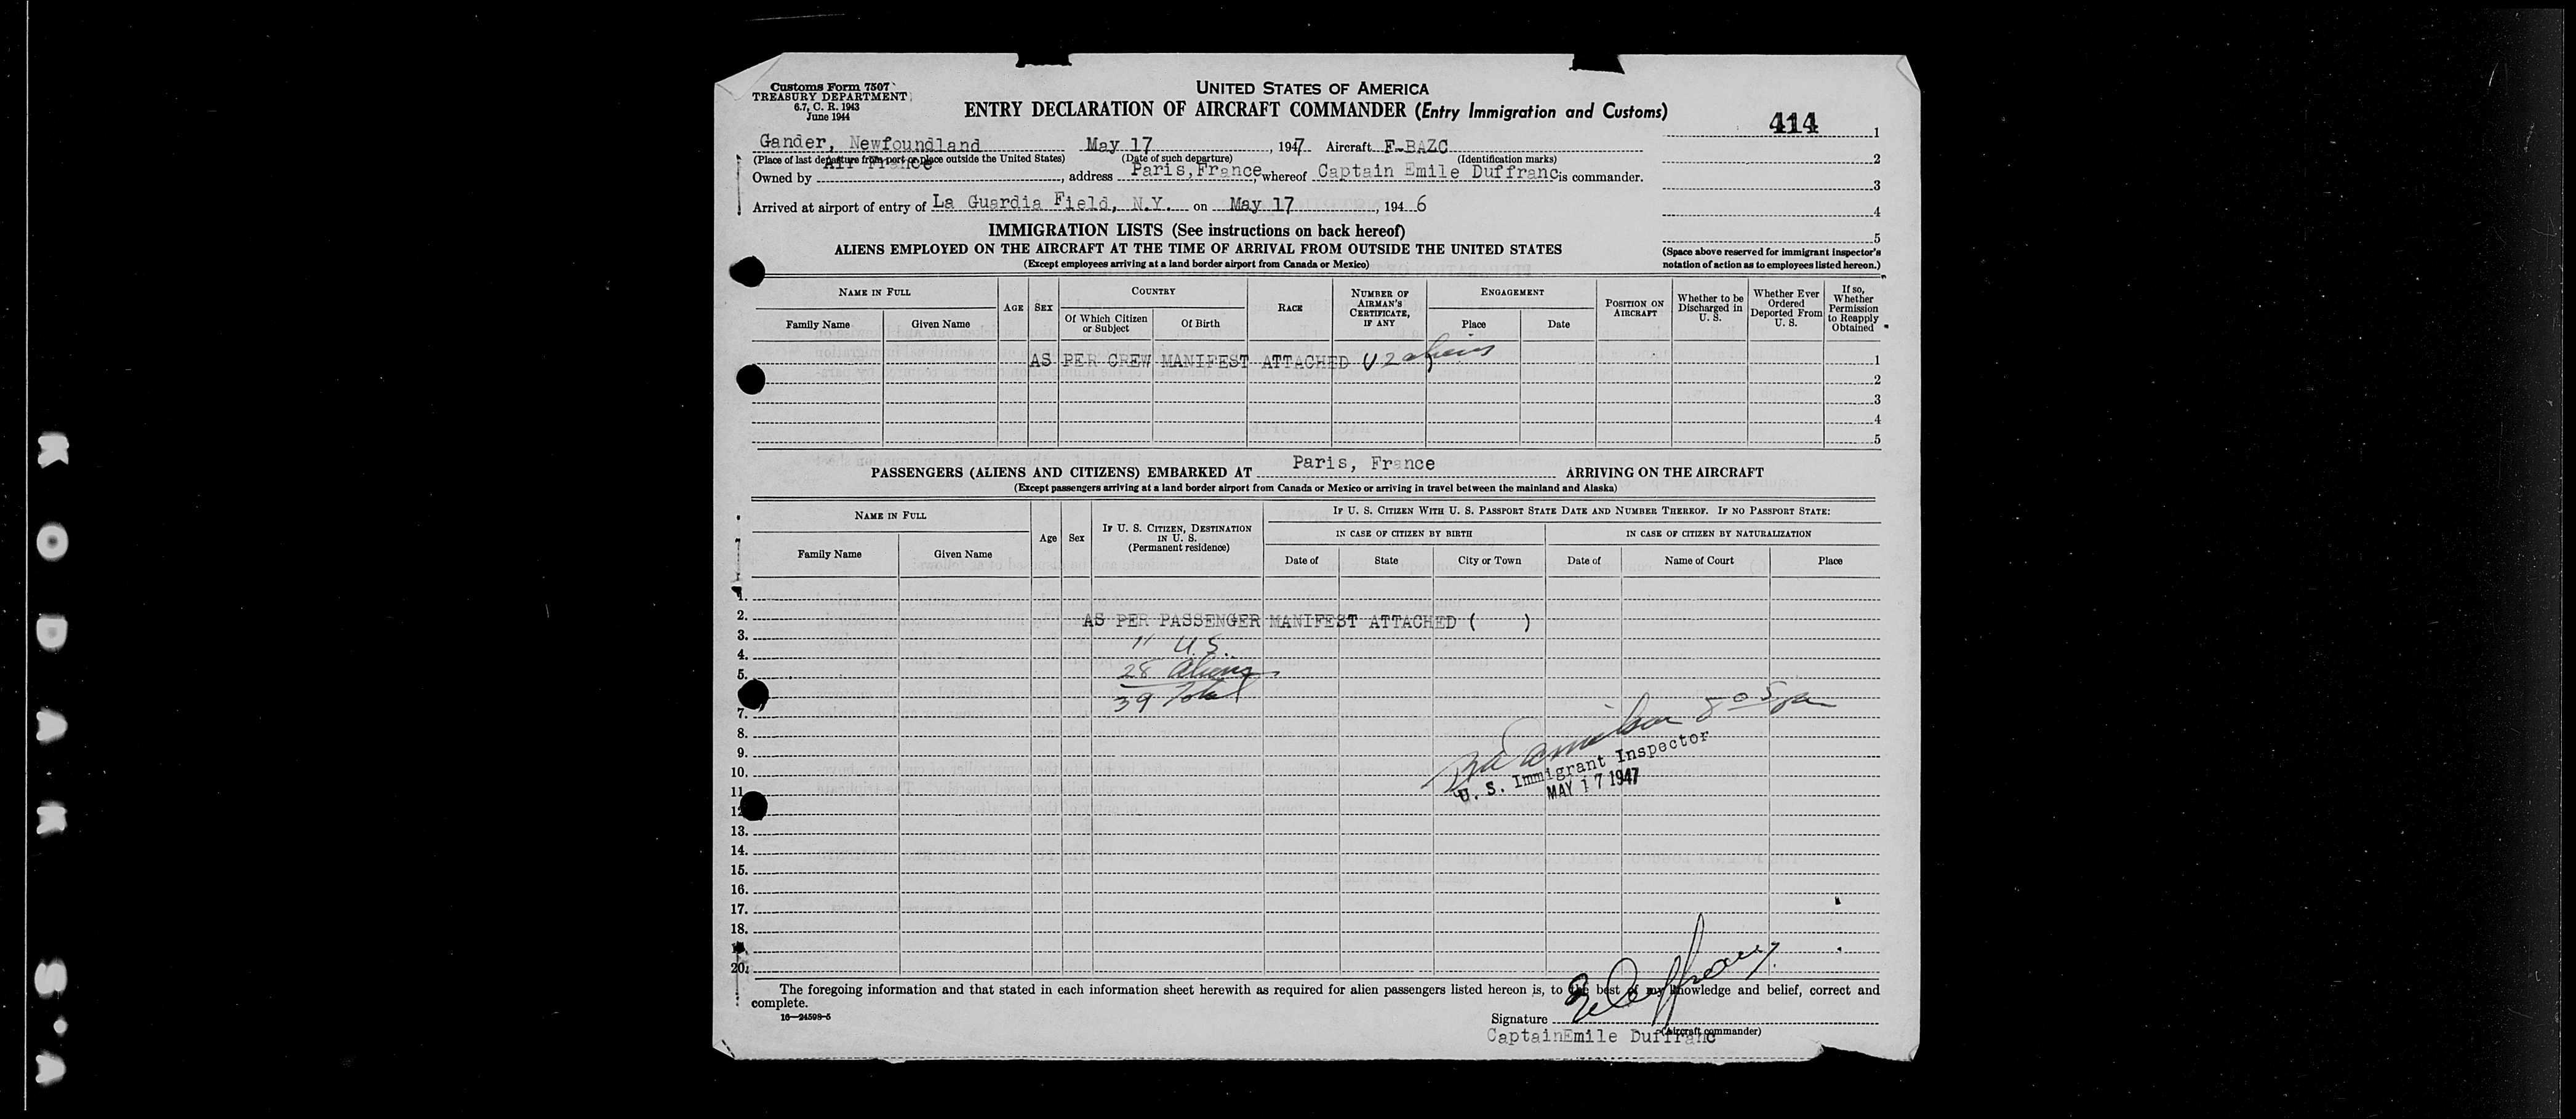 Customs Form 7507
TREASURY DEPARTMENT
6.7, C. R. 1943
June 1944
UNITED STATES OF AMERICA
ENTRY DECLARATION OF AIRCRAFT COMMANDER (Entry Immigration and Customs)
414
Gander, Newfoundland May 17, 1947 Aircraft F-BAZC
(Place of last departure from port or place outside the United States) (Date of such departure) (Identification marks)
Owned by Air France, address Paris, France, whereof Captain Emile Duffranc is commander.
Arrived at airport of entry of La Guardia Field, N.Y. on May 17, 1946
1
2
3
4
5
(Space above reserved for immigrant inspector's
notation of action as to employees listed hereon.)
IMMIGRATION LISTS (See instructions on back hereof)
ALIENS EMPLOYED ON THE AIRCRAFT AT THE TIME OF ARRIVAL FROM OUTSIDE THE UNITED STATES
(Except employees arriving at a land border airport from Canada or Mexico)
NAME IN FULL
Family Name
Given Name
AGE
SEX
COUNTRY
Of Which Citizen
or Subject
Of Birth
RACE
NUMBER OF
AIRMAN'S
CERTIFICATE,
IF ANY
ENGAGEMENT
Place
Date
POSITION ON
AIRCRAFT
Whether to be
Discharged in
U. S.
Whether Ever
Ordered
Deported From
U. S.
If so,
Whether
Permission
to Reapply
Obtained
AS PER CREW MANIFEST ATTACHED aliens 1
2
3
4
5
PASSENGERS (ALIENS AND CITIZENS) EMBARKED AT Paris, France ARRIVING ON THE AIRCRAFT
(Except passengers arriving at a land border airport from Canada or Mexico or arriving in travel between the mainland and Alaska)
NAME IN FULL
Family Name
Given Name
Age
Sex
IF U. S. CITIZEN, DESTINATION
IN U. S.
(Permanent residence)
IF U. S. CITIZEN WITH U. S. PASSPORT STATE DATE AND NUMBER THEREOF. IF NO PASSPORT STATE:
IN CASE OF CITIZEN BY BIRTH
IN CASE OF CITIZEN BY NATURALIZATION
Date of
State
City or Town
Date of
Name of Court
Place
1.
2. AS PER PASSENGER MANIFEST ATTACHED ( )
3. 11 U.S.
4.
5. 28 Aliens
39 Total
7.
8.
9.
10.
11.
U. S. Immigrant Inspector
MAY 17 1947
13.
14.
15.
16.
17.
18.
20.
The foregoing information and that stated in each information sheet herewith as required for alien passengers listed hereon is, to the best of my knowledge and belief, correct and
complete.
16—24598-5
Signature
(Aircraft commander)
CaptainEmile Duffranc